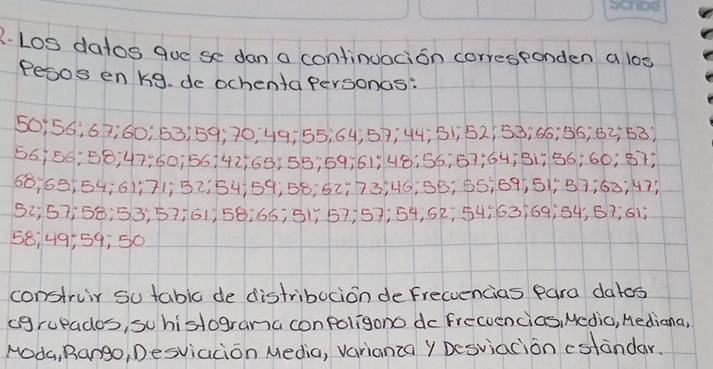 Scribe
2. Los datos que se dan a continuación corresponden a los
Pesos en Kg. de ochenta Personas:
50; 56; 67; 60; 53; 59; 70; 49; 55; 64; 57; 44; 51; 52; 53; 66; 56; 62; 53;
56; 56; 58; 47; 60; 56; 42; 65; 55; 59; 61; 48; 56; 57; 64; 51; 56; 60; 57;
68; 65; 54; 61; 71; 52; 54; 59; 58; 62; 73; 46; 55; 55; 59; 51; 57; 63; 47;
52; 57; 58; 53; 57; 61; 58; 66; 51; 57; 57; 54, 62; 54; 63; 69; 54; 57; 61;
58; 49; 59; 50
construir su tabla de distribución de Frecuencias para datos
agrupados, su histograma con Polígono de frecuencias, Media, Mediana,
Moda, Rango, Desviación Media, varianza y Desviación estándar.